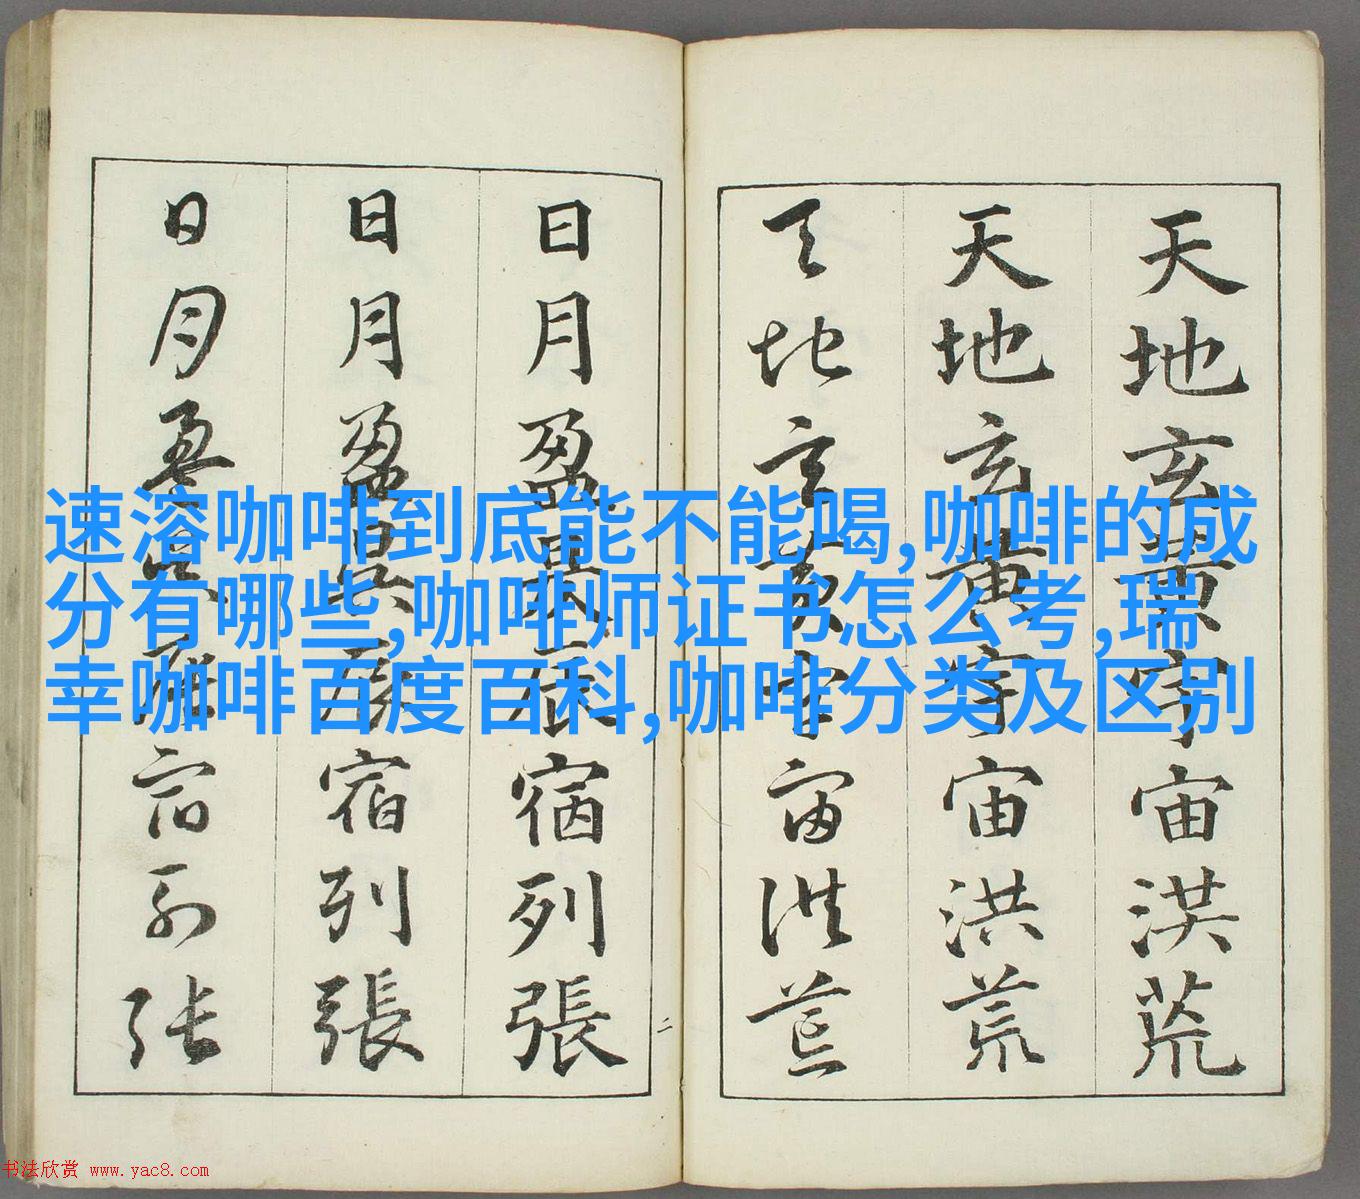 天地玄黃宇宙洪荒
天地玄黃宇宙洪荒
天地玄黃宇宙洪荒
日月盈昃辰宿列張
日月盈昃辰宿列張
日月盈昃辰宿列張
二
速溶咖啡到底能不能喝,咖啡的成
分有哪些,咖啡师证书怎么考,瑞
幸咖啡百度百科,咖啡分类及区别
书法欣赏 www.yac8.com